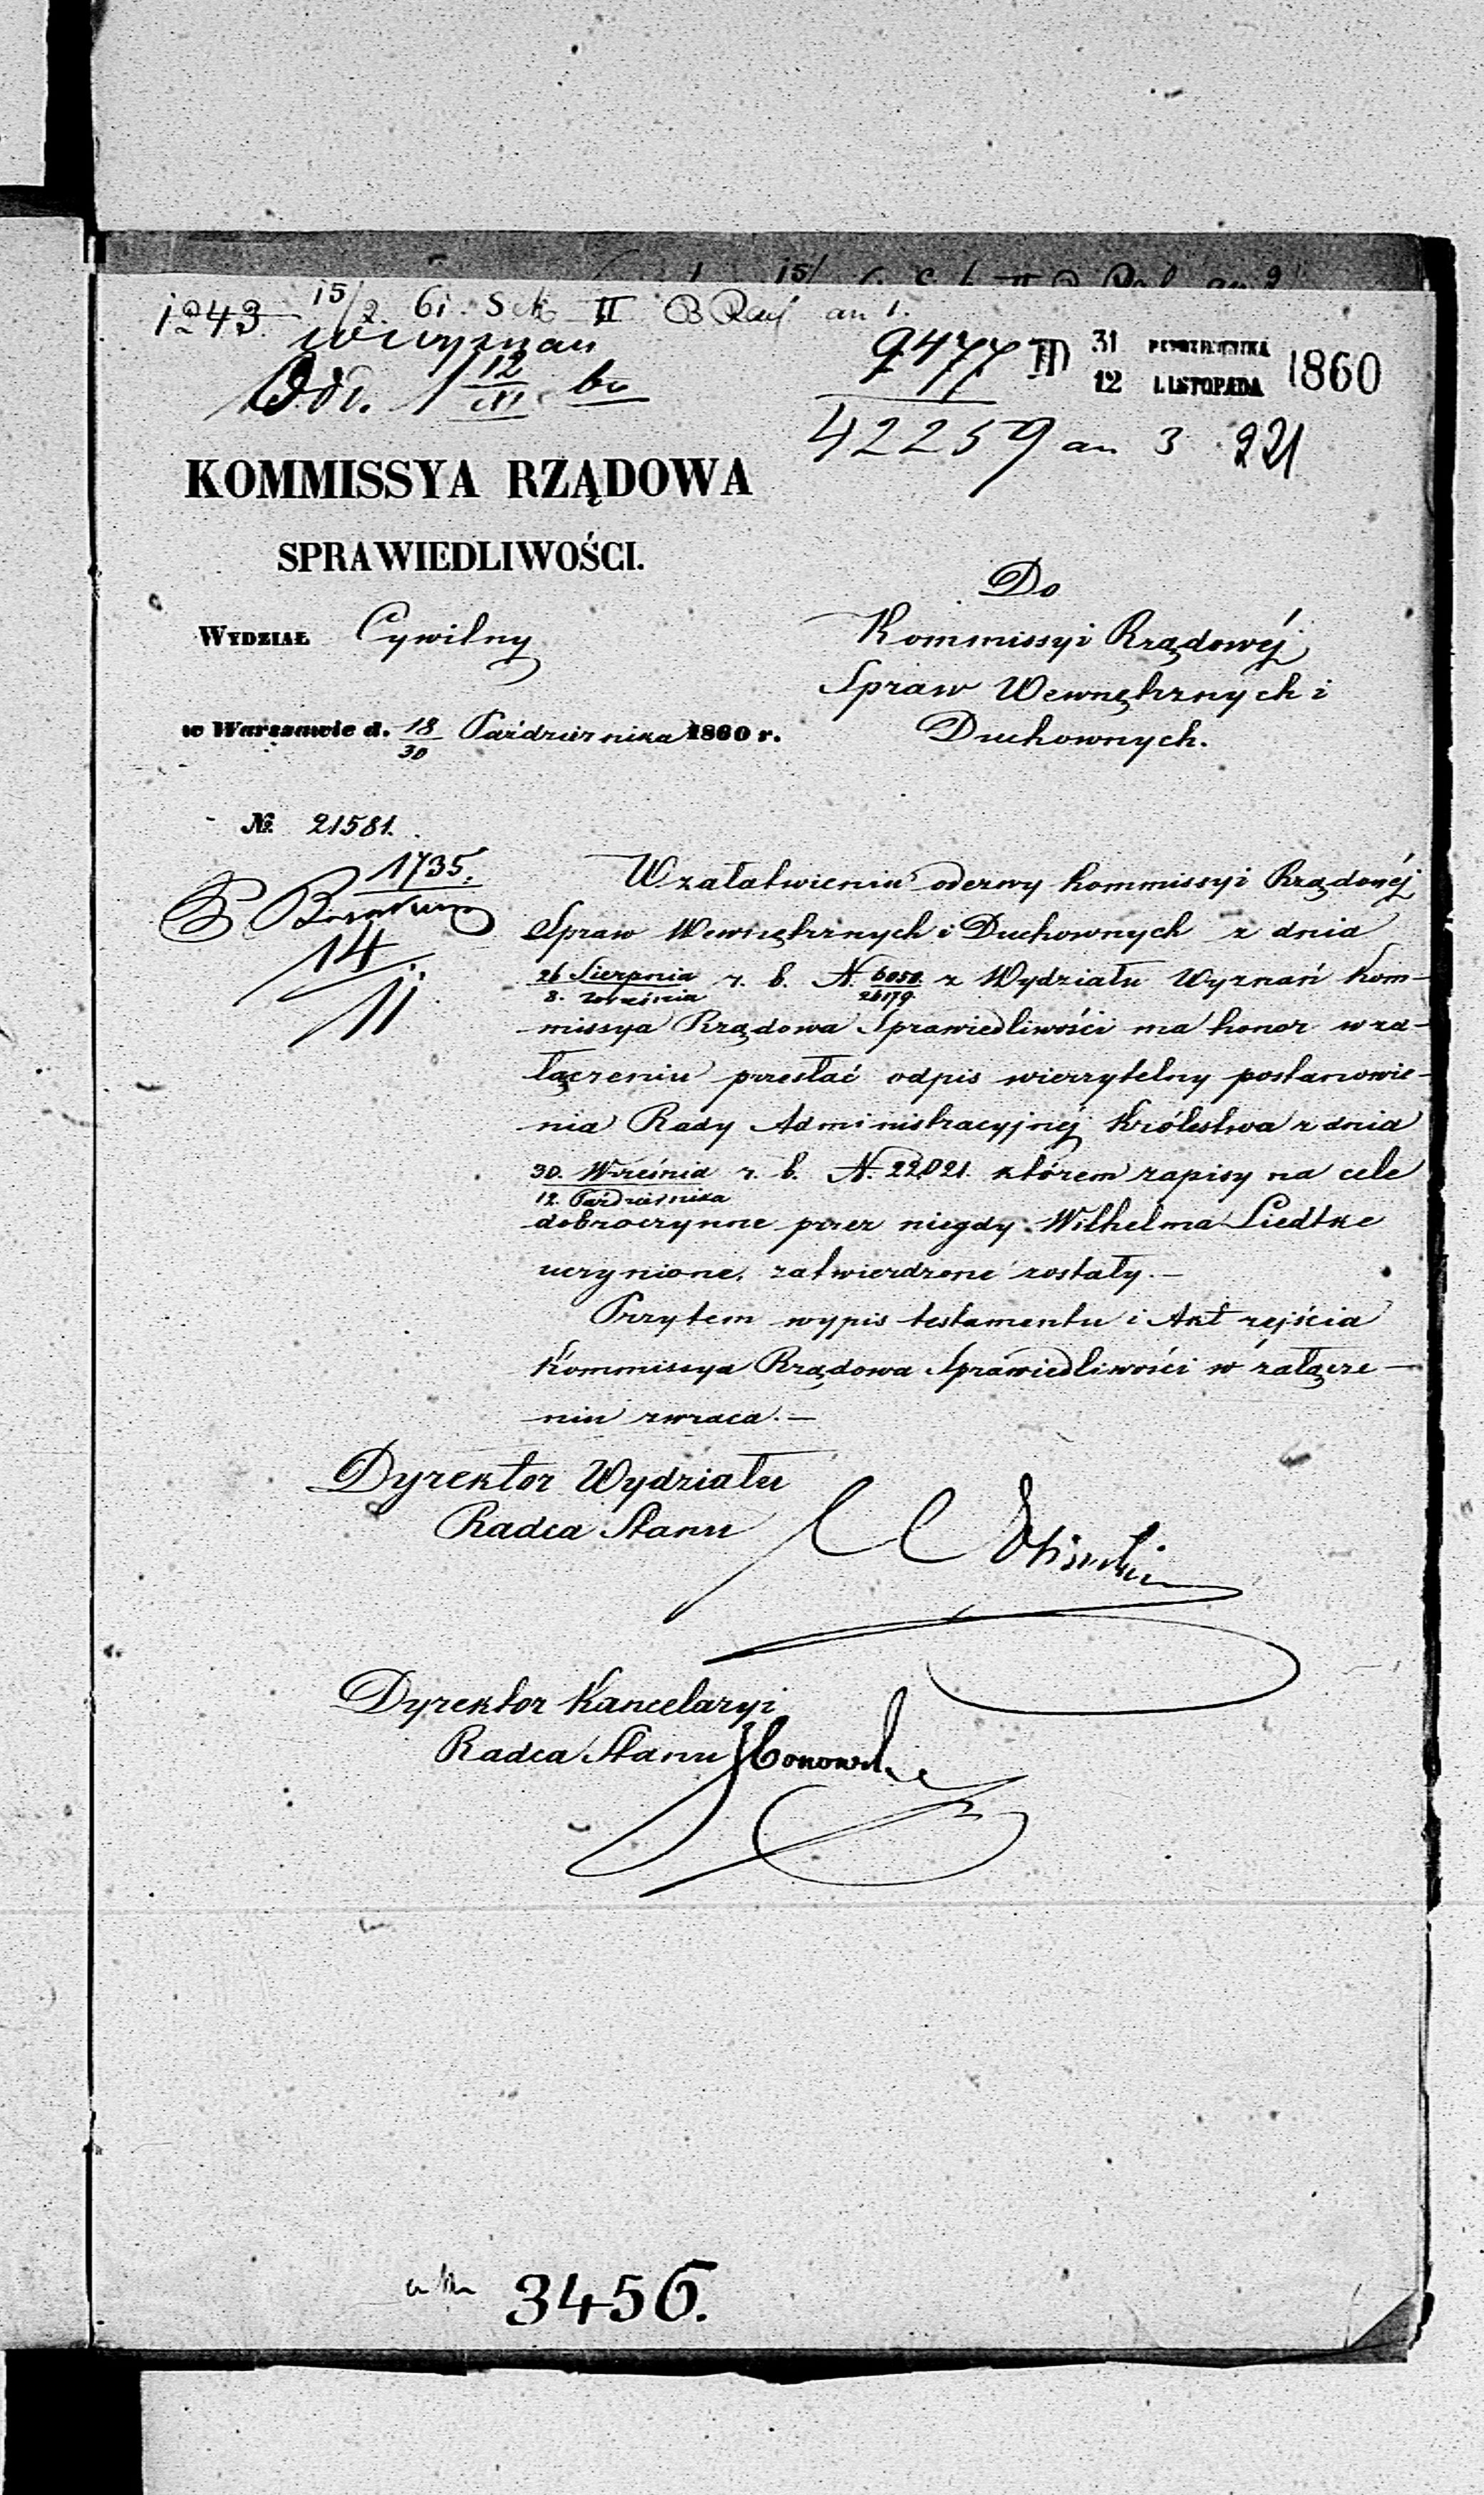 1243. 15/2 61. Sek II B Rej an 1.
W Wyznań
Odd. 1 12/XI 60
9477 III 31 PAŹDZIERNIKA 1860
17 12 LISTOPADA
42259 an 3 221
KOMMISSYA RZĄDOWA
SPRAWIEDLIWOŚCI.
WYDZIAŁ Cywilny
w Warszawie d. 18/30 Października 1860 r.
№ 21581.
Do
Kommissyi Rządowéj
Spraw Wewnętrznych i
Duchownych.
1735.
14
11
W załatwieniu odezwy Kommissyi Rządowéj
Spraw Wewnętrznych i Duchownych z dnia
26 Sierpnia/8. Września r. b. N. 6050./26179. z Wydziału Wyznań Kom-
missya Rządowa Sprawiedliwości ma honor w za-
łączeniu przesłać odpis wierzytelny postanowie-
nia Rady Administracyjnéj Królestwa z dnia
30. Września/12. Października r. b. N. 22,021. którem zapisy na cele
dobroczynne przez niegdy Wilhelma Liedtke
uczynione, zatwierdzone zostały.—
Przytem wypis testamentu i Akt zejścia
Kommissya Rządowa Sprawiedliwości w załącze-
niu zwraca.—
Dyrektor Wydziału
Radca Stanu
Dyrektor Kancelaryi
Radca Stanu
3456.